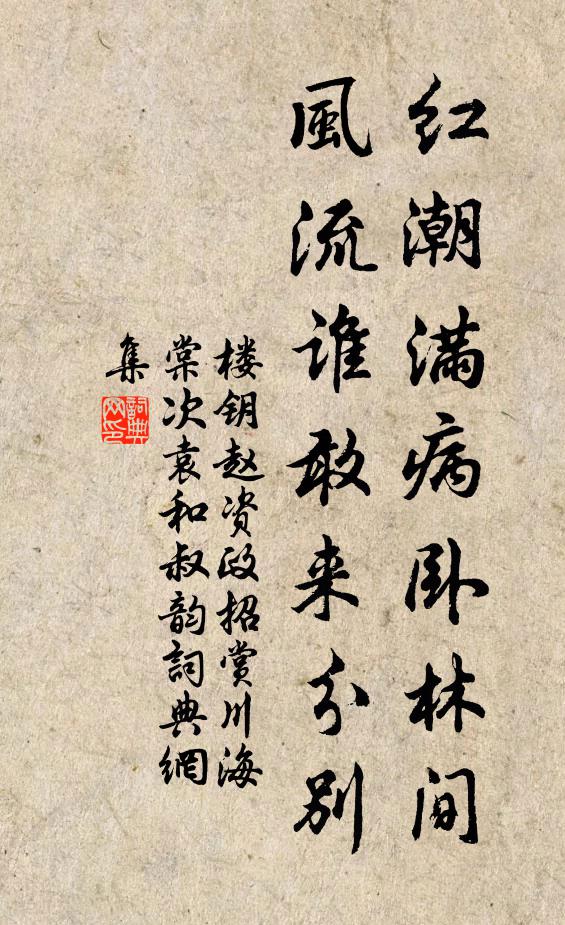 红潮满病卧林间
風流谁敢来分别
楼钥赵资政招赏川海
棠次袁和叔韵詞典網
集
詞典網印